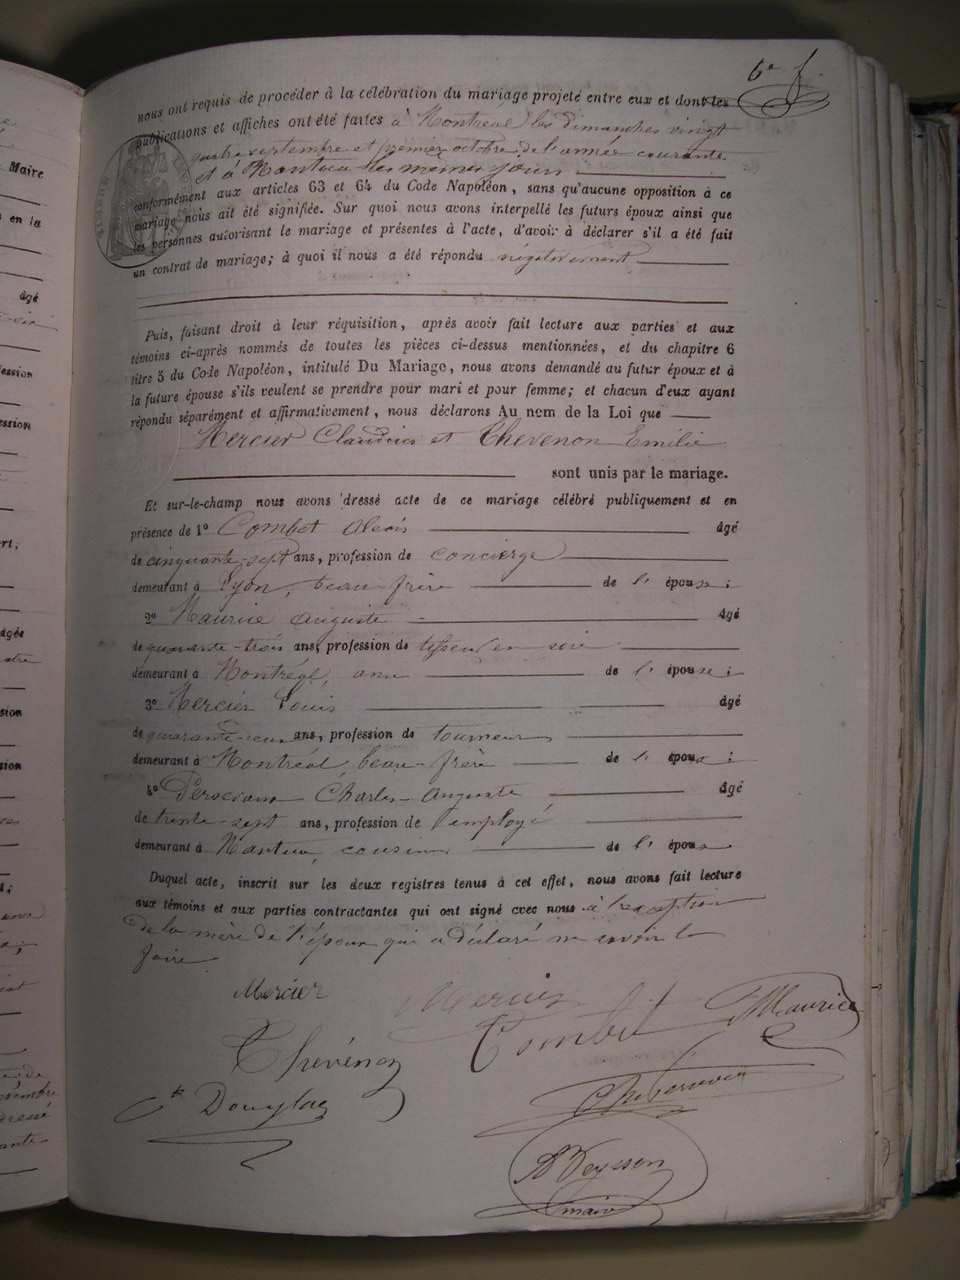 6e
nous ont requis de procéder à la célébration du mariage projeté entre eux et dont les
publications et affiches ont été faites à Montréal les dimanches vingt
quatre septembre et premier octobre de l'année courante
et à Nantua les mêmes jours
conformément aux articles 63 et 64 du Code Napoléon, sans qu'aucune opposition à ce
mariage nous ait été signifiée. Sur quoi nous avons interpellé les futurs époux ainsi que
les personnes autorisant le mariage et présentes à l'acte, d'avoir à déclarer s'il a été fait
un contrat de mariage; à quoi il nous a été répondu négativement
Puis, faisant droit à leur réquisition, après avoir fait lecture aux parties et aux
témoins ci-après nommés de toutes les pièces ci-dessus mentionnées, et du chapitre 6
titre 5 du Code Napoléon, intitulé Du Mariage, nous avons demandé au futur époux et à
la future épouse s'ils veulent se prendre pour mari et pour femme; et chacun d'eux ayant
répondu séparément et affirmativement, nous déclarons Au nom de la Loi que
Mercier Claudius et Thevenon Emélie
sont unis par le mariage.
Et sur-le-champ nous avons dressé acte de ce mariage célébré publiquement et en
présence de 1° Combet Alexis âgé
de cinquante-sept ans, profession de concierge
demeurant à Lyon, beau-frère de l'épouse;
2° Maurice Auguste âgé
de quarante-trois ans, profession de tisseur en soie
demeurant à Montréal, ami de l'épouse;
3° Mercier Louis âgé
de quarante- ans, profession de tourneur
demeurant à Montréal, beau-frère de l'époux;
4° Charles-Auguste âgé
de trente-sept ans, profession de employé
demeurant à Nantua, cousin de l'époux
Duquel acte, inscrit sur les deux registres tenus à cet effet, nous avons fait lecture
aux témoins et aux parties contractantes qui ont signé avec nous à l'exception
de la mère de l'époux qui a déclaré ne savoir le
faire
Mercier Mercier
Combet Maurice
Thévenon
Douglas
Maire